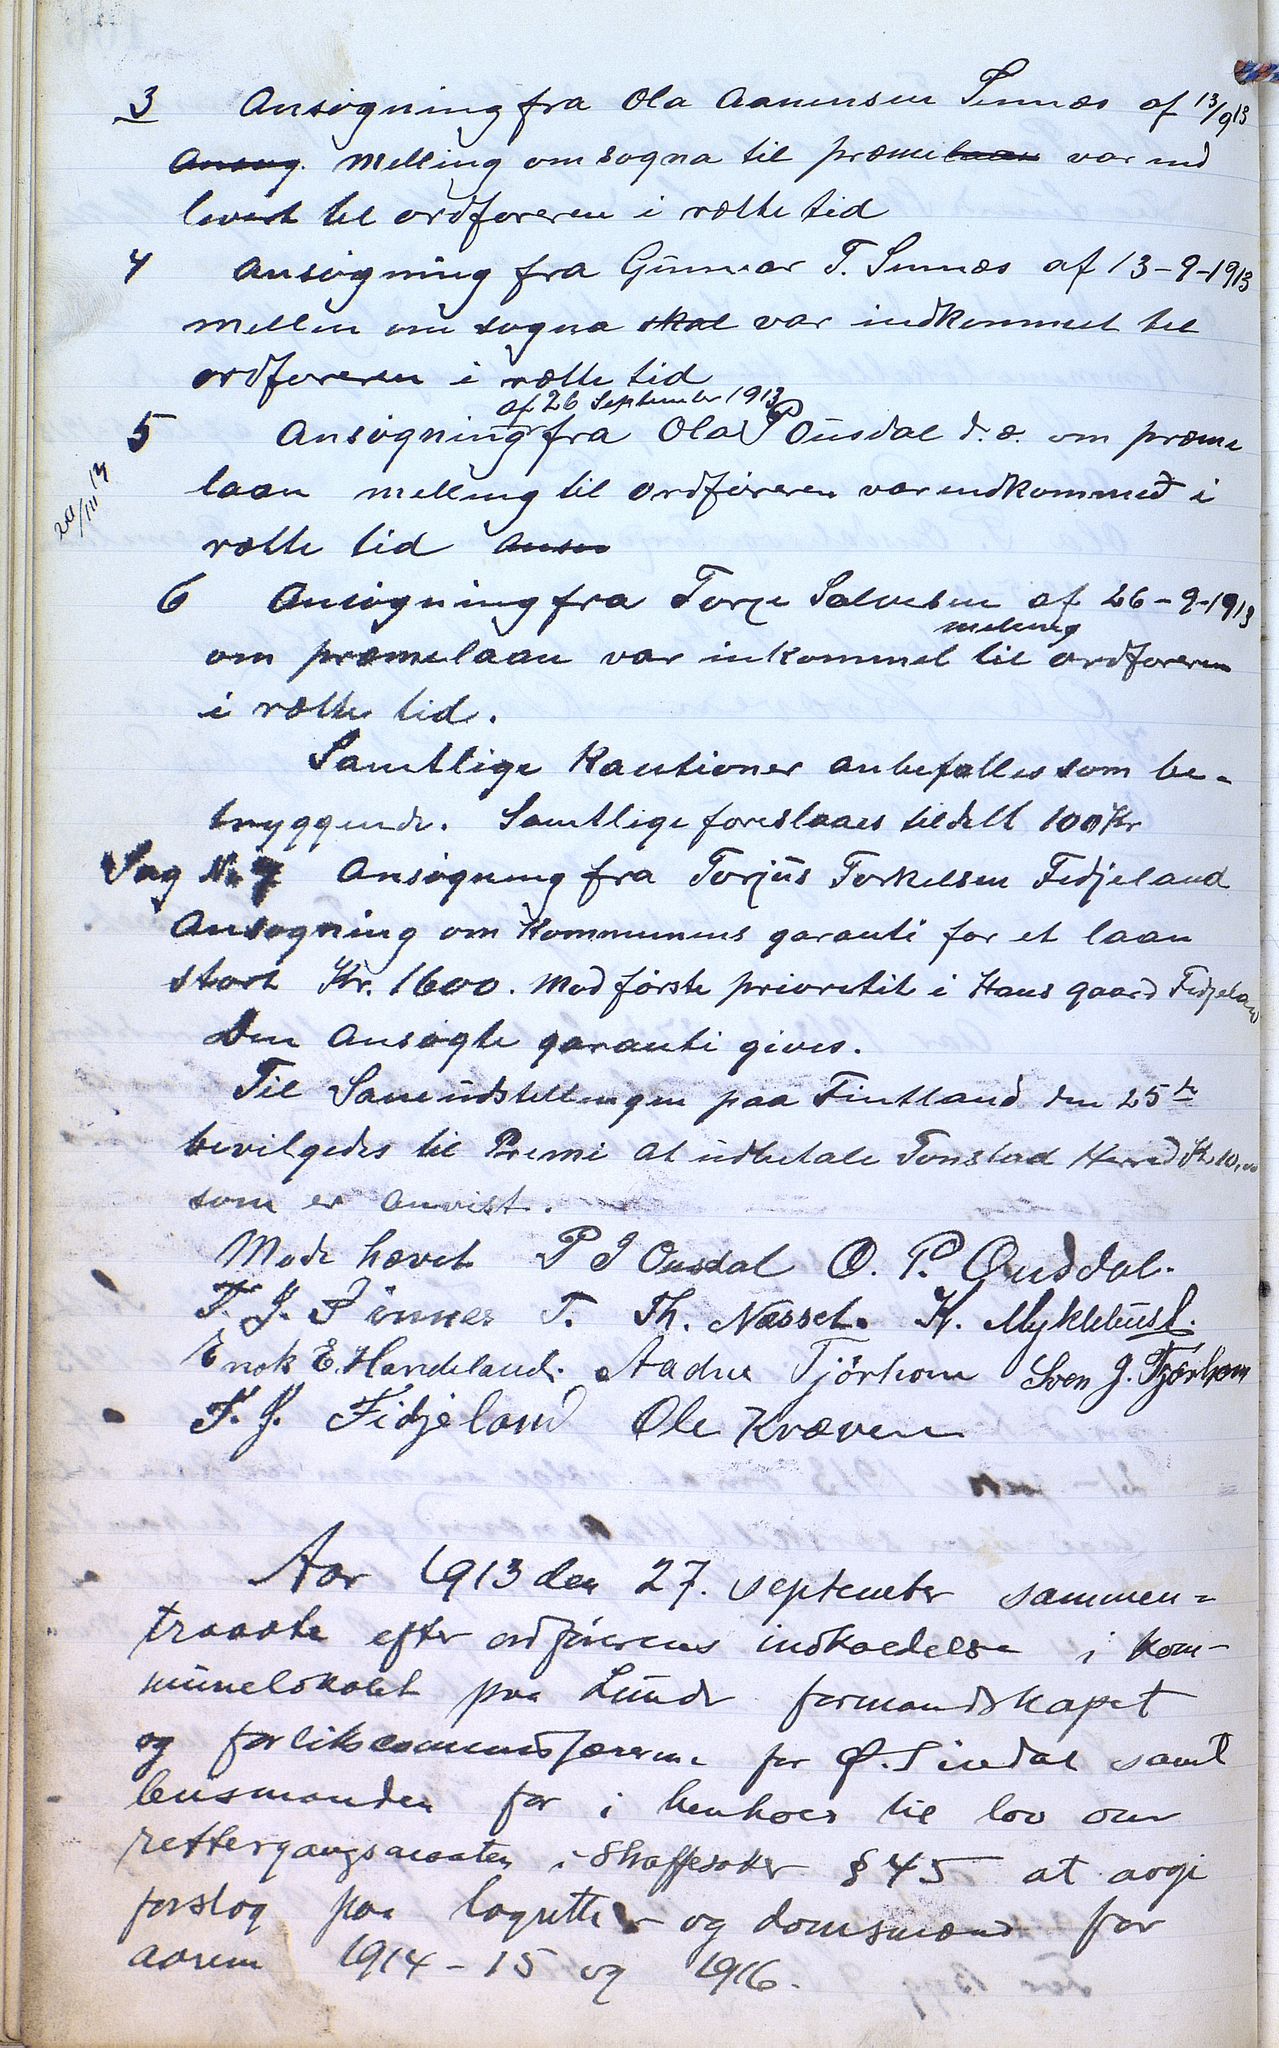 3 Ansøgning fra Ola Aanensen Sinnes af 13/9 13
Ansøg. melling om søgna til præmelaan var ind
levert til ordføreren i rætte tid
4 Ansøgning fra Gunnar T. Sinnes af 13-9-1913
mellen om søgna skal var indkommet til
ordføreren i rætte tid
af 26 September 1913
5 Ansøgning fra Ola P Ousdal d.æ. om præme
laan melling til ordføreren var indkommet i
rætte tid Ansø
6 Ansøgning fra Torje Salvesen af 26-9-1913
meling
om præmelaan var inkommet til ordføreren
i rætte tid.
Samtlige Kautioner anbefalles som be-
tryggende. Samtlige foreslaaes tildelt 100 Kr
Sag No 7 Ansøgning fra Torjus Torkelsen Fidjeland
Ansøgning om Kommunens garanti for et laan
stort Kr. 1600. Mod første prioritit i Hans gaard Fidjeland
Den Ansøgte garanti gives.
Til Saueudstellingen paa Fintland den 25de
bevilgedes til Premi at udbetale Tonstad Herred Kr 10,00
som er anvist.
Møde hævet P J Ousdal O. P. Ousdal.
T. J. Sinnes T. Th. Nesset. K. Myklebust.
Enok E. Handeland. Aadne Tjørhom Sven J. Tjørhom
T. J. Fidjeland Ole Kvæven
Aar 1913 den 27. september sammen=
traadte efter ordførerens indkaldelse i kom-
munelokalet paa Lunde formandskapet
og forlikscommisærerne for Ø. Sirdal samt
lensmanden for i henhold til lov om
rettergangsmaaten i straffesaker § 45 at avgi
forslag paa lagrette og domsmænd for
aarene 1914-15 og 1916.